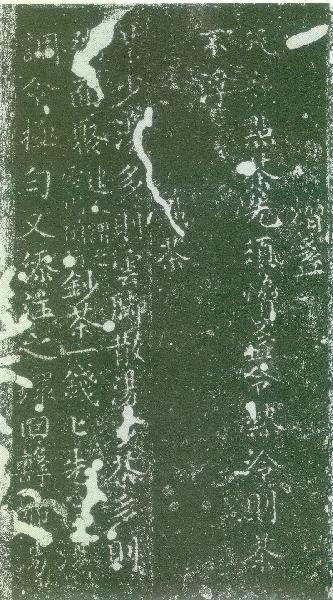 熁盞
凡點茶先須熁盞令熱冷則茶
不浮
茶
少湯多則雲腳散湯少茶多則
面聚鈔茶一錢匕先
調令極勻又添注之環回擊拂